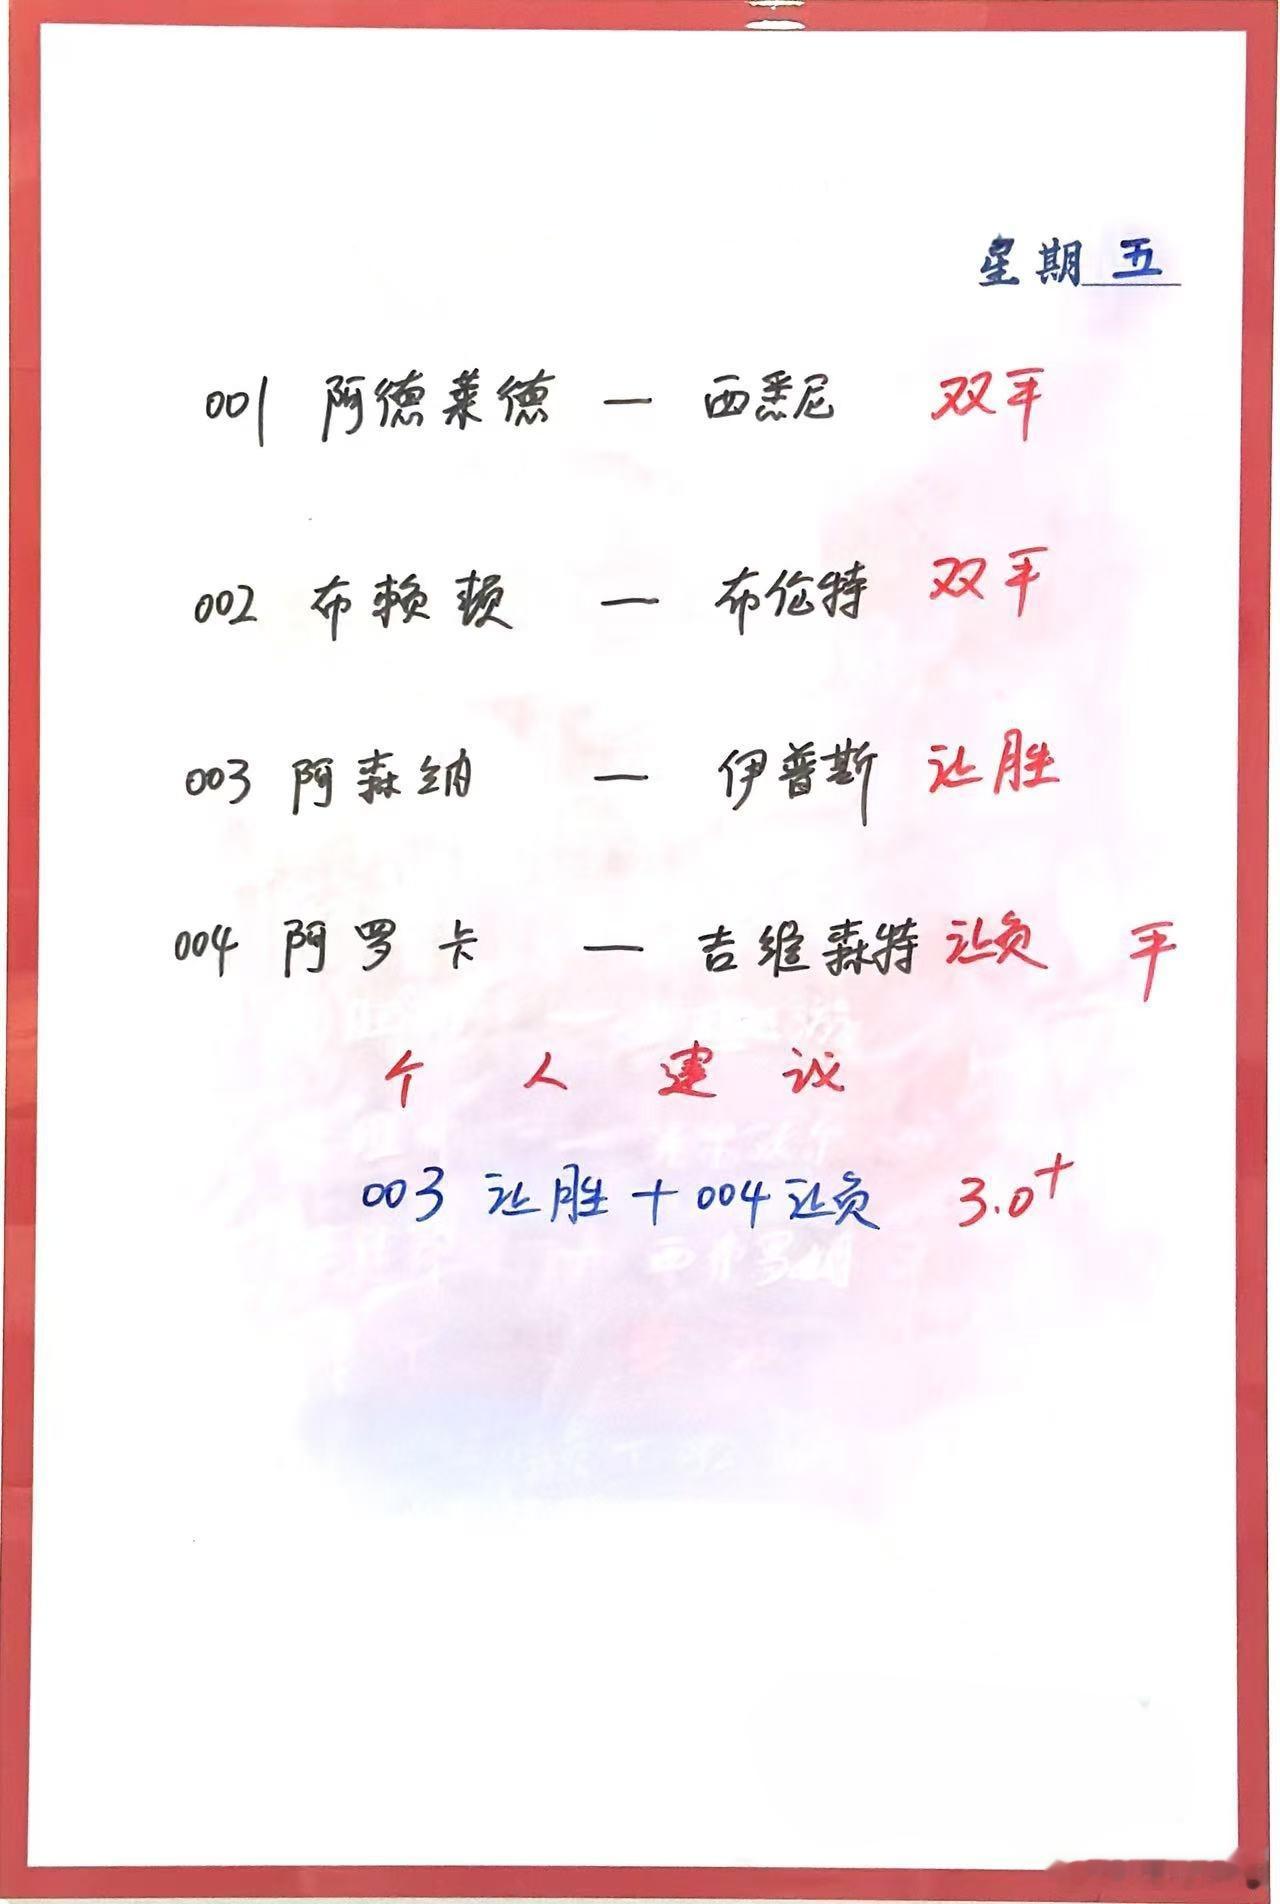 星期五
001 阿德莱德 — 西悉尼 双平
002 布赖顿 — 布伦特 双平
003 阿森纳 — 伊普斯 让胜
004 阿罗卡 — 吉维森特 让负 平
个人建议
003 让胜 + 004 让负 3.0+